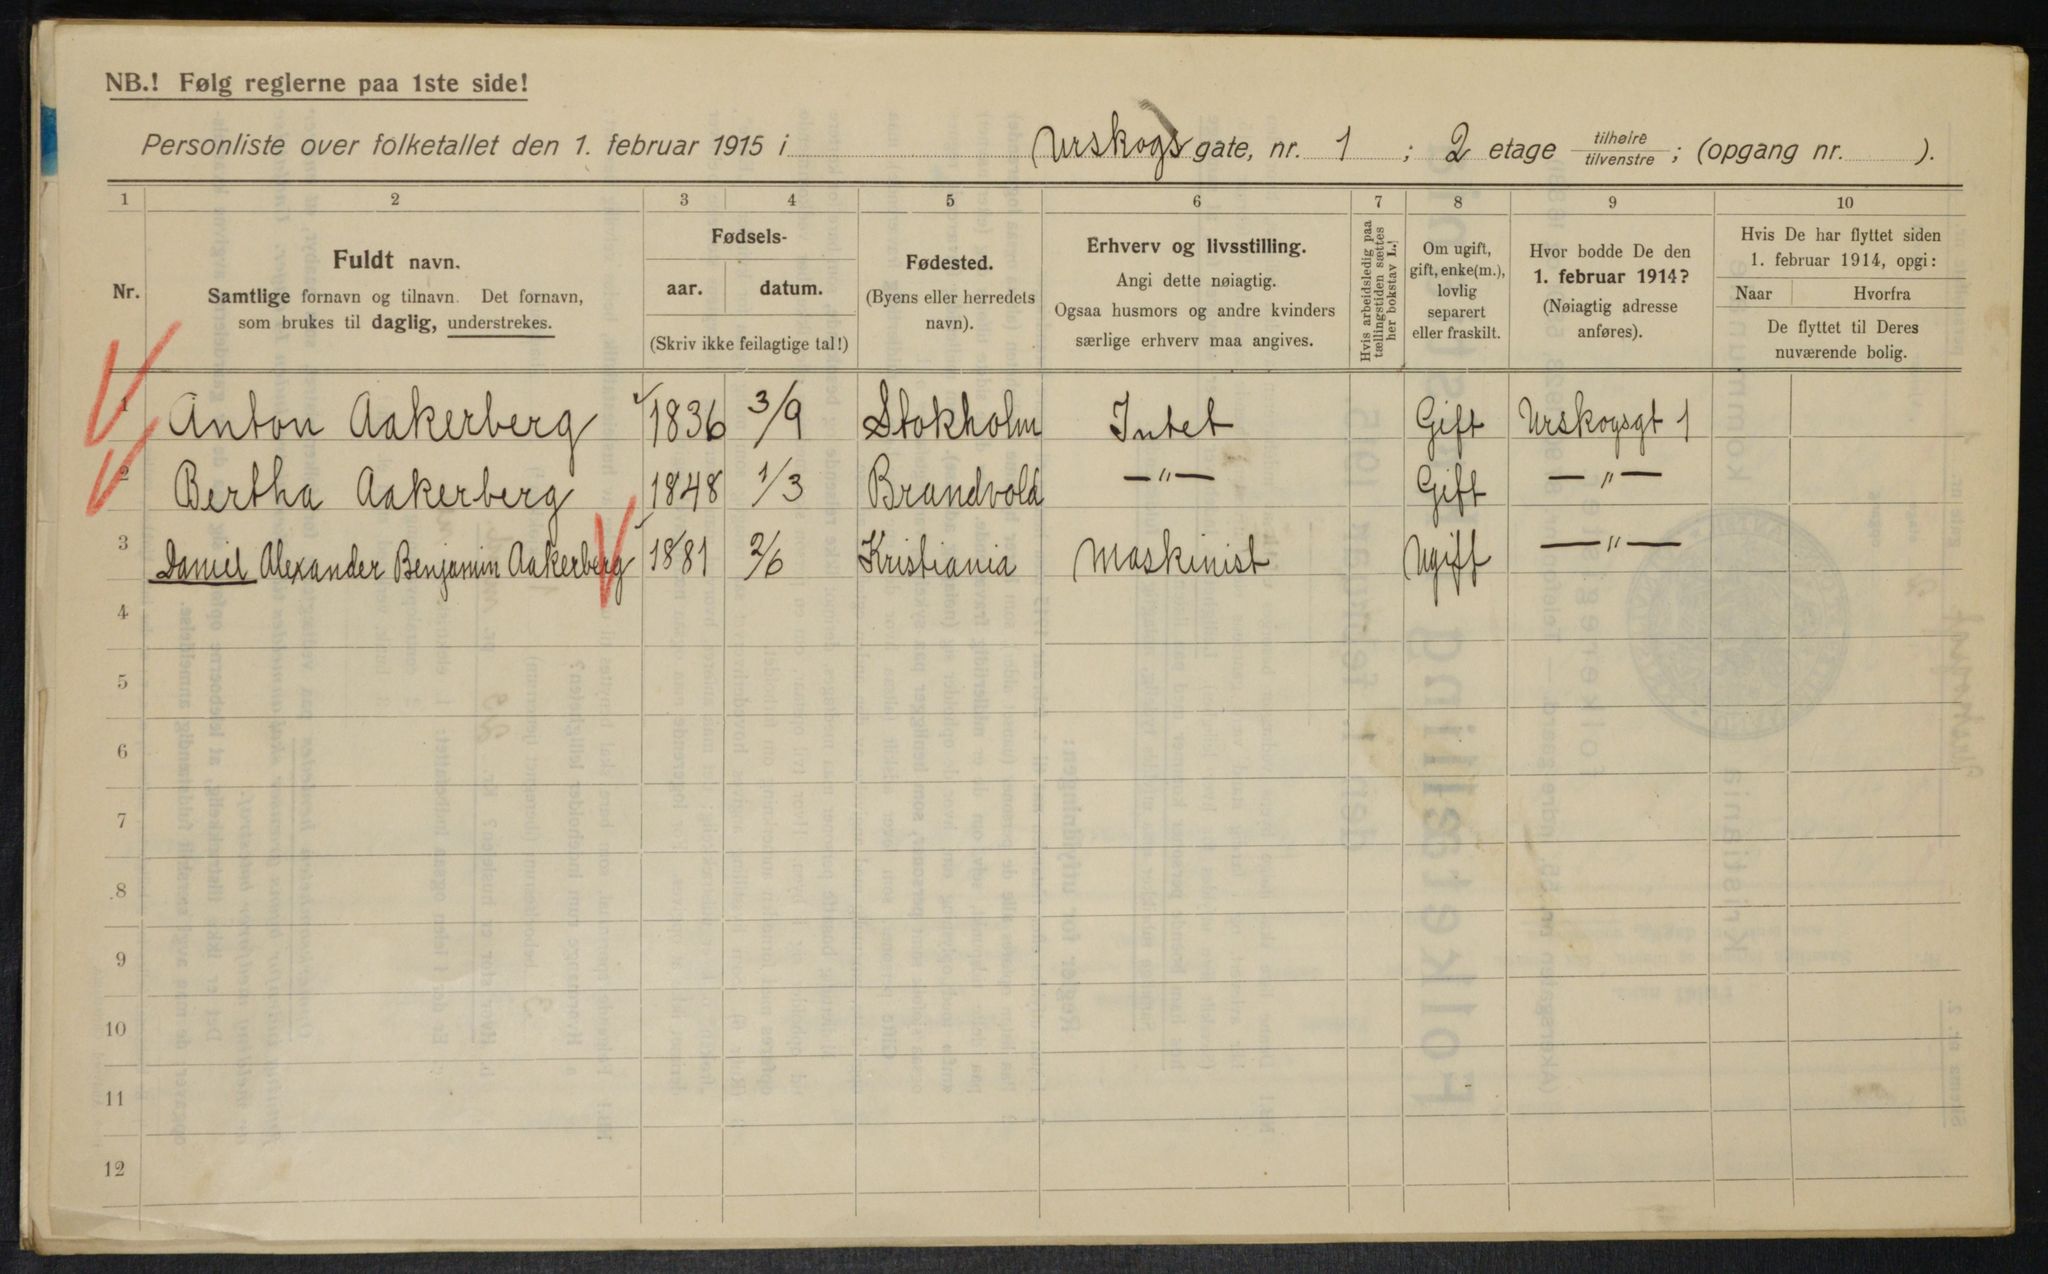 NB.! Følg reglerne paa 1ste side!
Personliste over folketallet den 1. februar 1915 i Urskogs gate, nr. 1 ; 2 etage tilhøire / tilvenstre ; (opgang nr. ).
1 2 3 4 5 6 7 8 9 10
Nr.
Fuldt navn.
Samtlige fornavn og tilnavn. Det fornavn,
som brukes til daglig, understrekes.
Fødsels-
aar. datum.
(Skriv ikke feilagtige tal!)
Fødested.
(Byens eller herredets
navn).
Erhverv og livsstilling.
Angi dette nøiagtig.
Ogsaa husmors og andre kvinders
særlige erhverv maa angives.
Hvis arbeidsledig paa
tællingstiden sættes
her bokstav L.
Om ugift,
gift, enke(m.),
lovlig
separert
eller fraskilt.
Hvor bodde De den
1. februar 1914?
(Nøiagtig adresse
anføres).
Hvis De har flyttet siden
1. februar 1914, opgi:
Naar Hvorfra
De flyttet til Deres
nuværende bolig.
1 Anton Aakerberg 1836 3/9 Stokholm Intet Gift Urskogsgt 1
2 Bertha Aakerberg 1848 1/3 Brandvold —"— Gift —"—
3 Daniel Alexander Benjamin Aakerberg 1881 2/6 Kristiania Maskinist Ugift —"—
4
5
6
7
8
9
10
11
12